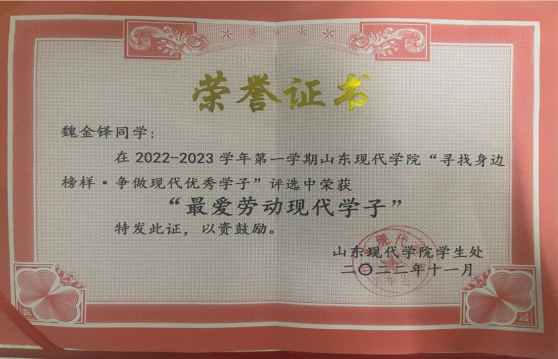 荣誉证书
魏金铎同学：
在2022-2023学年第一学期山东现代学院“寻找身边
榜样·争做现代优秀学子”评选中荣获
“最爱劳动现代学子”
特发此证，以资鼓励。
山东现代学院学生处
二〇二二年十一月